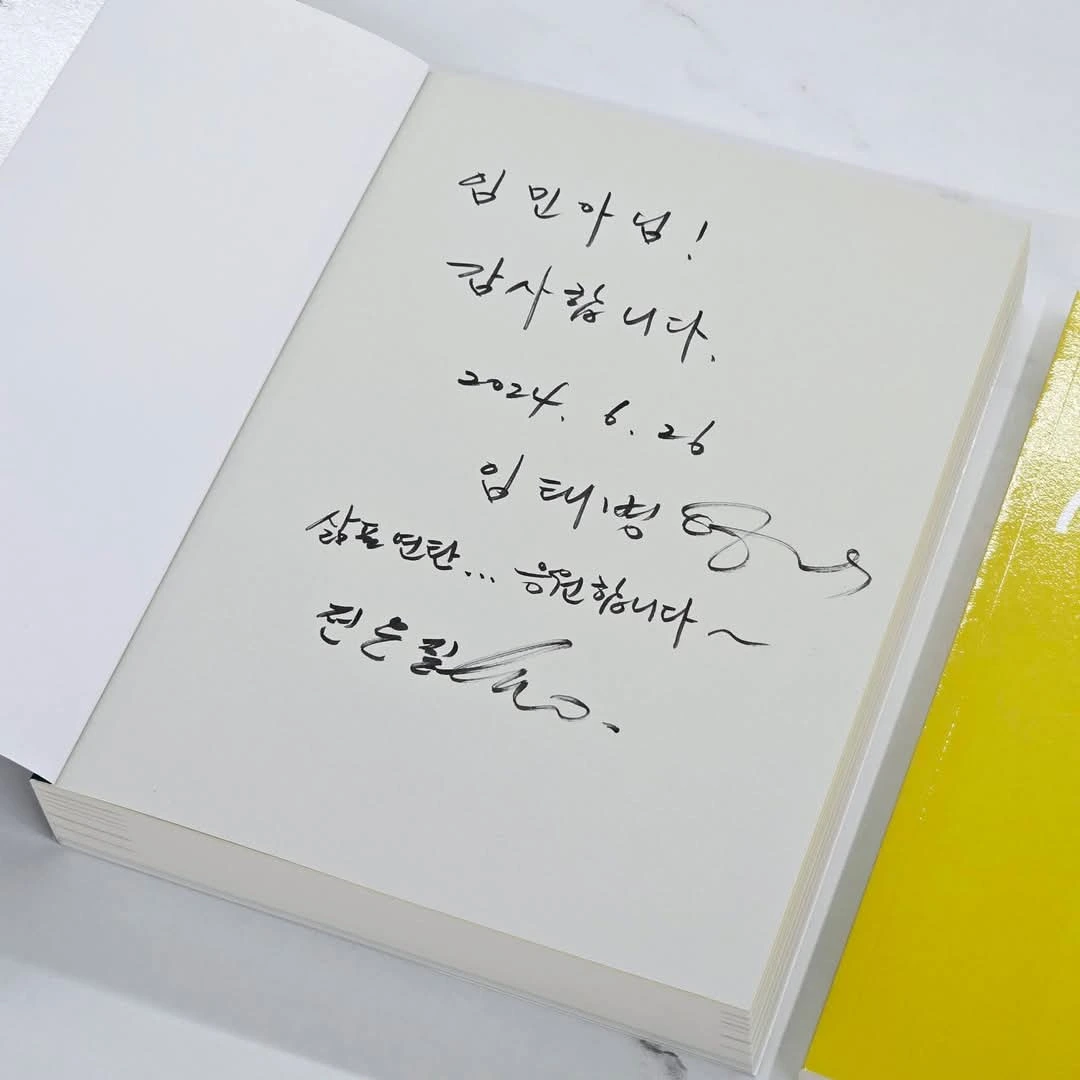 임 민 아 님!
감사합니다.
2024. 6. 26
임 태 병
삶표 연탄... 응원합니다~
전 은 필